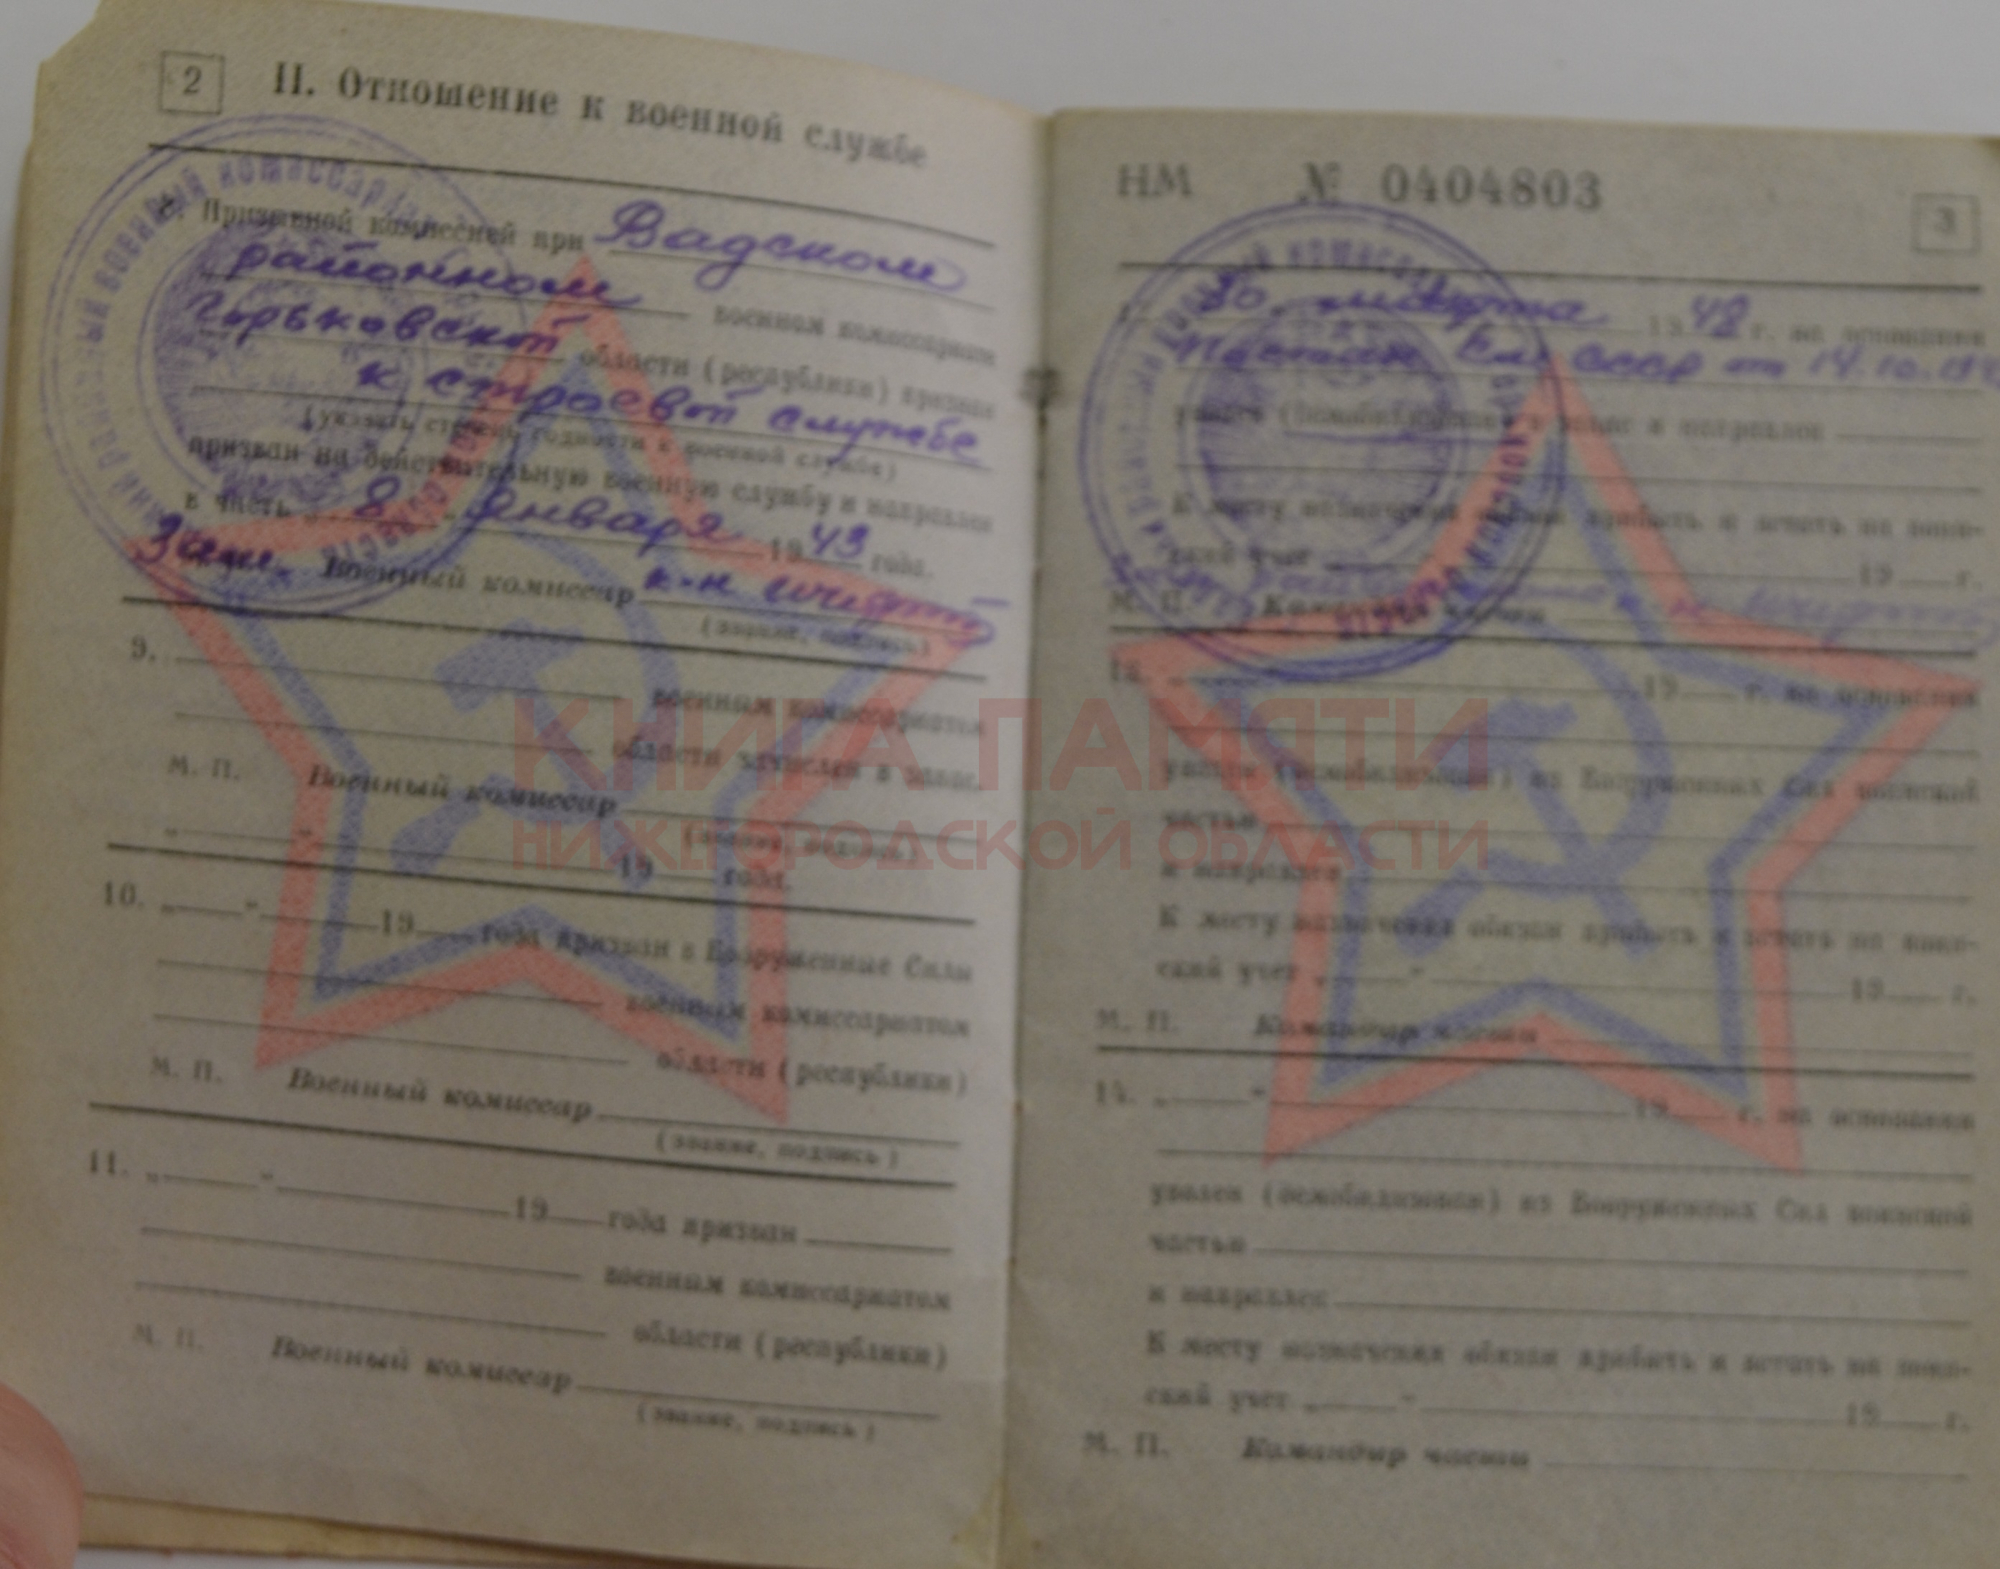 2
II. Отношение к военной службе
8. Призывной комиссией при Вадском
районном военном комиссариате
Горьковской области (республики) признан
к строевой службе
(указать степень годности к военной службе)
призван на действительную военную службу и направлен
в часть „ 8 " января 1943 года.
Зам. Военный комиссар к-н
(звание, подпись)
9.
военным комиссариатом
области зачислен в запас.
М. П. Военный комиссар
(звание, подпись)
„ " 19 года.
10. „ " 19 года призван в Вооруженные Силы
военным комиссариатом
области (республики)
М. П. Военный комиссар
(звание, подпись)
11. „ " 19 года призван
военным комиссариатом
области (республики)
М. П. Военный комиссар
(звание, подпись)
НМ № 0404803
3
марта 19 г. на основании
СССР от 14.10.
уволен (демобилизован) в запас и направлен
К месту назначения обязан прибыть и встать на воин-
ский учет 19 г.
М. П. Командир части
19 г. на основании
уволен (демобилизован) из Вооруженных Сил воинской
частью
и направлен
К месту назначения обязан прибыть и встать на воин-
ский учет „ " 19 г.
М. П. Командир части
14. „ " 19 г. на основании
уволен (демобилизован) из Вооруженных Сил воинской
частью
и направлен
К месту назначения обязан прибыть и встать на воин-
ский учет „ " 19 г.
М. П. Командир части
КНИГА ПАМЯТИ
НИЖЕГОРОДСКОЙ ОБЛАСТИ